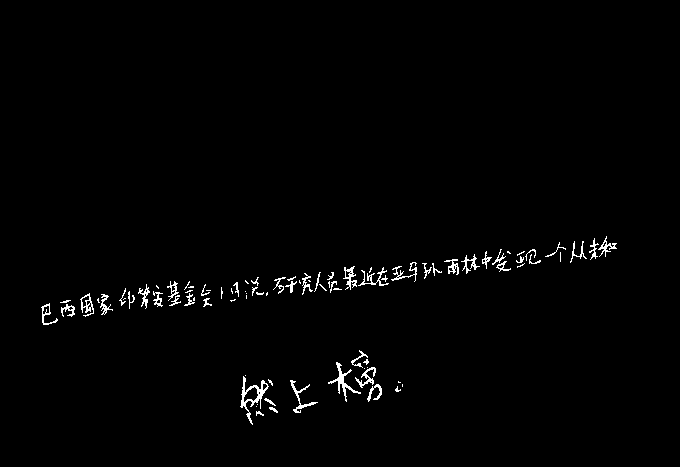 巴西国家印第安基金会1日说,研究人员最近在亚马孙雨林中发现一个从未和
然上榜。